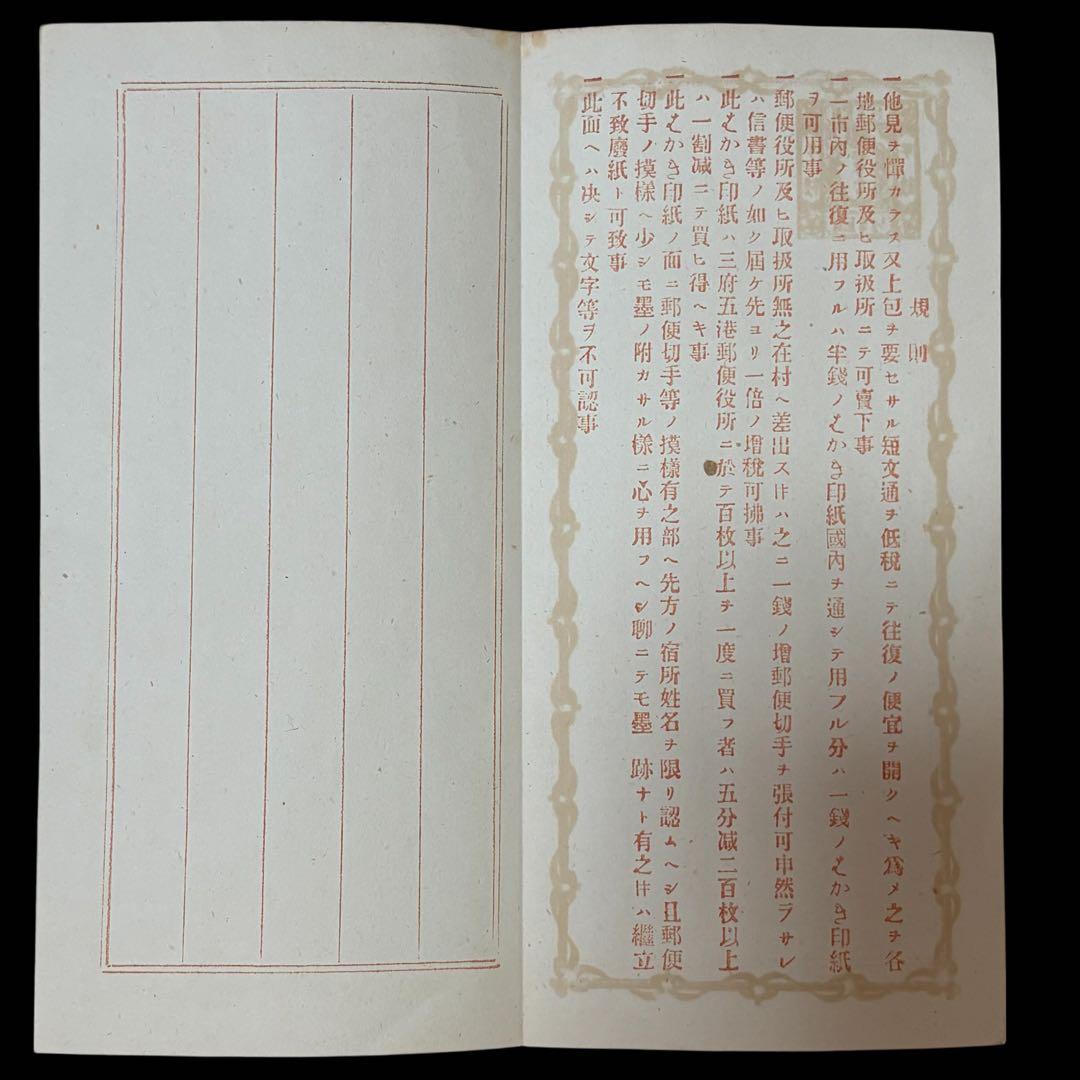 規則
一他見ヲ憚カラス又上包ヲ要セサル短文通ヲ低税ニテ往復ノ便宜ヲ開クヘキ為メ之ヲ各
地郵便役所及ヒ取扱所ニテ可賣下事
一一市内ノ往復ニ用フルハ半錢ノはかき印紙國内ヲ通シテ用フル分ハ一錢ノはかき印紙
ヲ可用事
一郵便役所及ヒ取扱所無之在村ヘ差出ス𪜈ハ之ニ一錢ノ増郵便切手ヲ張付可申然ラサレ
ハ信書等ノ如ク屆ケ先ヨリ一倍ノ増税可拂事
一此はかき印紙ハ三府五港郵便役所ニ於テ百枚以上ヲ一度ニ買フ者ハ五分减二百枚以上
ハ一割减ニテ買ヒ得ヘキ事
一此はかき印紙ノ面ニ郵便切手等ノ摸樣有之部ヘ先方ノ宿所姓名ヲ限リ認ムヘシ且郵便
切手ノ摸樣ヘ少シモ墨ノ附カサル樣ニ心ヲ用フヘシ聊ニテモ墨 跡ナト有之𪜈ハ繼立
不致廢紙ト可致事
一此面ヘハ决シテ文字等ヲ不可認事